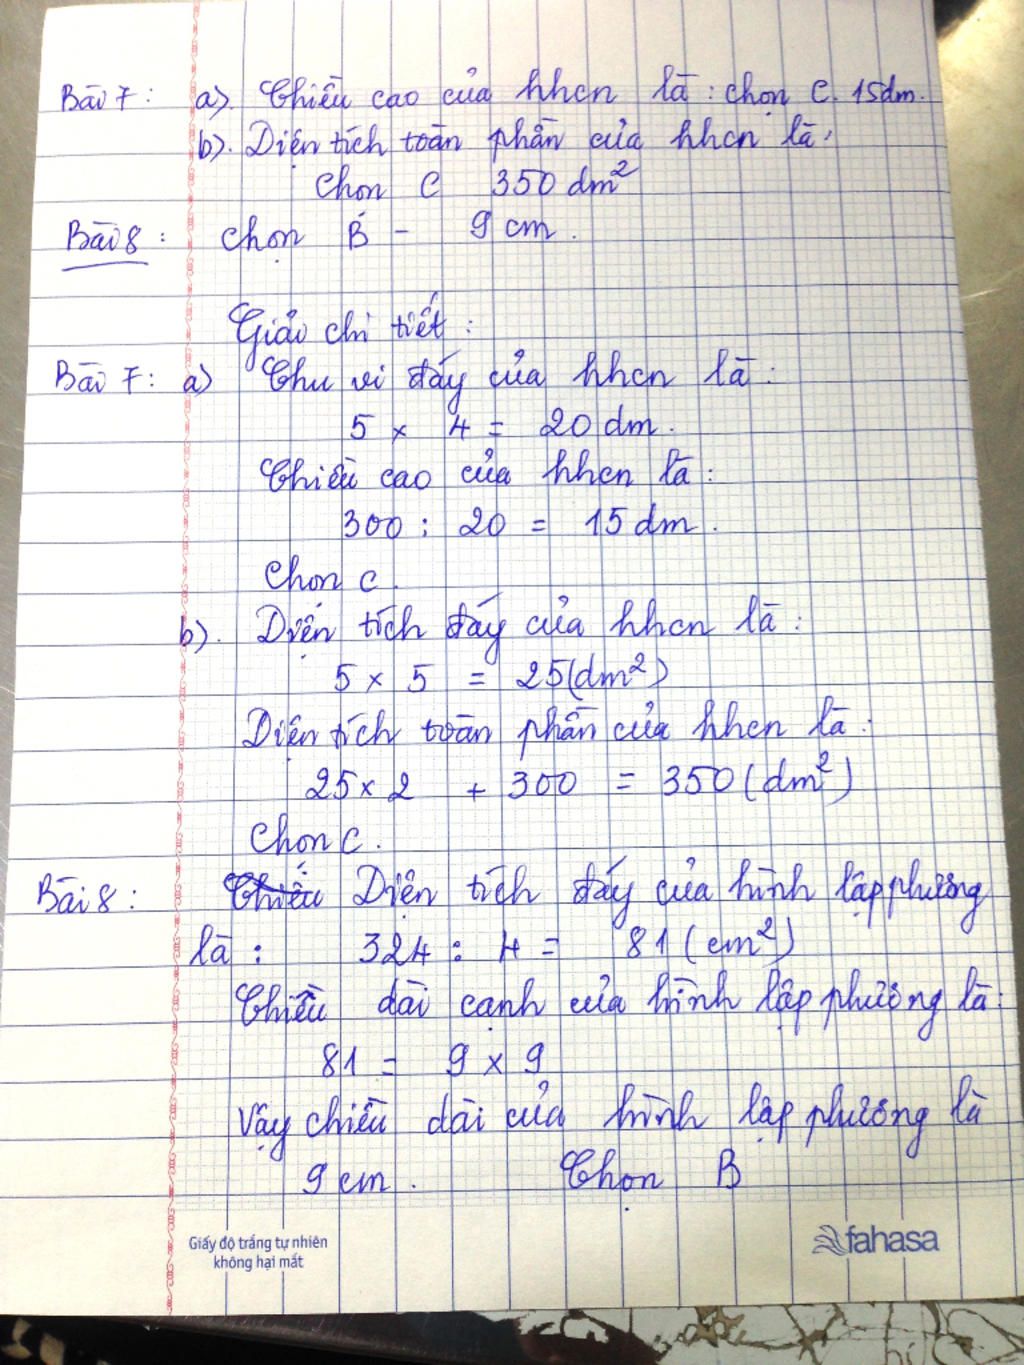 Bài 7 : a). Chiều cao của hhcn là : chọn C. 15dm.
b). Diện tích toàn phần của hhcn là :
Chọn C 350 dm²
Bài 8 : chọn B - 9 cm.
Giải chi tiết :
Bài 7 : a) Chu vi đáy của hhcn là :
5 x 4 = 20 dm.
Chiều cao của hhcn là :
300 : 20 = 15 dm.
Chọn C.
b). Diện tích đáy của hhcn là :
5 x 5 = 25(dm²)
Diện tích toàn phần của hhcn là :
25 x 2 + 300 = 350 (dm²)
Chọn C.
Bài 8 : Chiều Diện tích đáy của hình lập phương
là : 324 : 4 = 81 (cm²)
Chiều dài cạnh của hình lập phương là :
81 = 9 x 9
Vậy chiều dài của hình lập phương là
9 cm. Chọn B
Giấy độ trắng tự nhiên
không hại mắt
fahasa